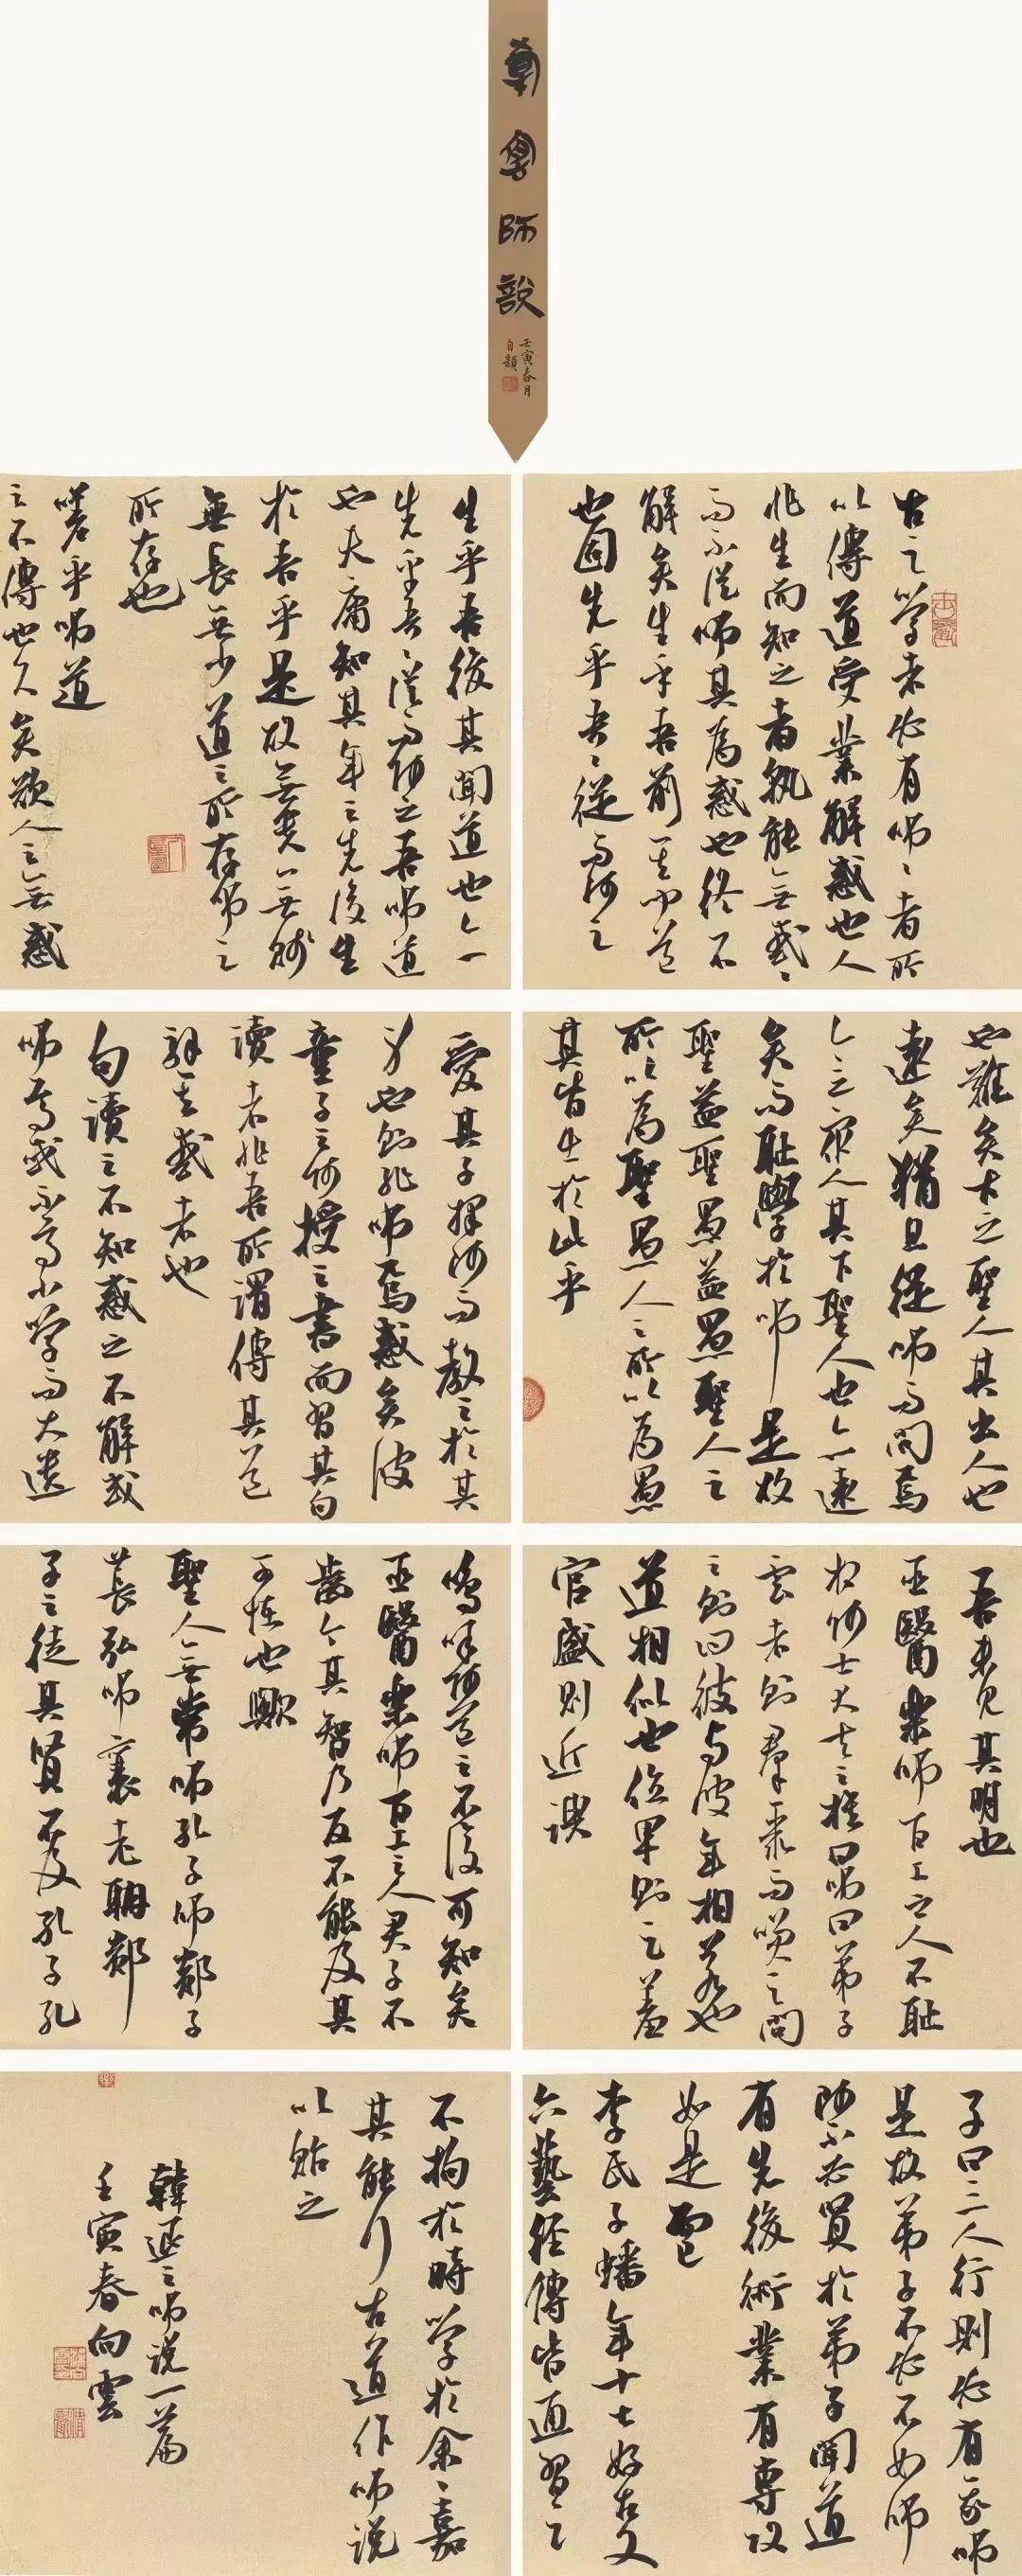 韓愈師說
壬寅春月
自題
古之學者必有師々者所
以傳道受業解惑也人
非生而知之者孰能無惑々
而不從師其為惑也終不
解矣生乎吾前其聞道
也固先乎吾々從而師之
生乎吾後其聞道也亦
先乎吾々從而師之吾師道
也夫庸知其年之先後生
於吾乎是故無貴無賤
無長無少道之所存師之
所存也
嗟乎師道
之不傳也久矣欲人之無惑
也難矣古之聖人其出人也
遠矣猶且從師而問焉
今之眾人其下聖人也亦遠
矣而恥學於師是故
聖益聖愚益愚聖人之
所以為聖愚人之所以為愚
其皆出於此乎
愛其子擇師而教之於其
身也則恥師焉惑矣彼
童子之師授之書而習其句
讀者非吾所謂傳其道
解其惑者也
句讀之不知惑之不解或
師焉或不焉小學而大遺
吾未見其明也
巫醫樂師百工之人不恥
相師士大夫之族曰師曰弟子
雲者則群聚而笑之問
之則曰彼與彼年相若也
道相似也位卑則足羞
官盛則近諛
嗚呼師道之不復可知矣
巫醫樂師百工之人君子不
齒今其智乃反不能及其
可怪也歟
聖人無常師孔子師郯子
萇弘師襄老聃郯
子之徒其賢不及孔子孔
子曰三人行則必有我師
是故弟子不必不如師
師不必賢於弟子聞道
有先後術業有專攻
如是而已
李氏子蟠年十七好古文
六藝經傳皆通習之
不拘於時學於余々嘉
其能行古道作師說
以貽之
韓退之師說一篇
壬寅春向雲